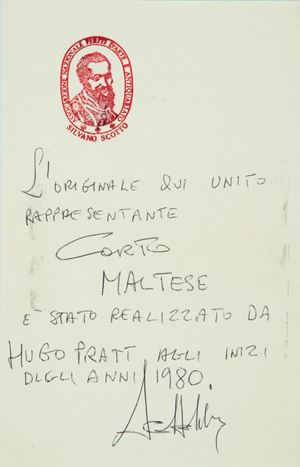 ASSOCIAZIONE NAZIONALE PERITI D'ARTE E ANTIQUARIATO
SILVANO SCOTTO
L'ORIGINALE QUI UNITO
RAPPRESENTANTE
CORTO
MALTESE
E' STATO REALIZZATO DA
HUGO PRATT AGLI INIZI
DEGLI ANNI 1980.